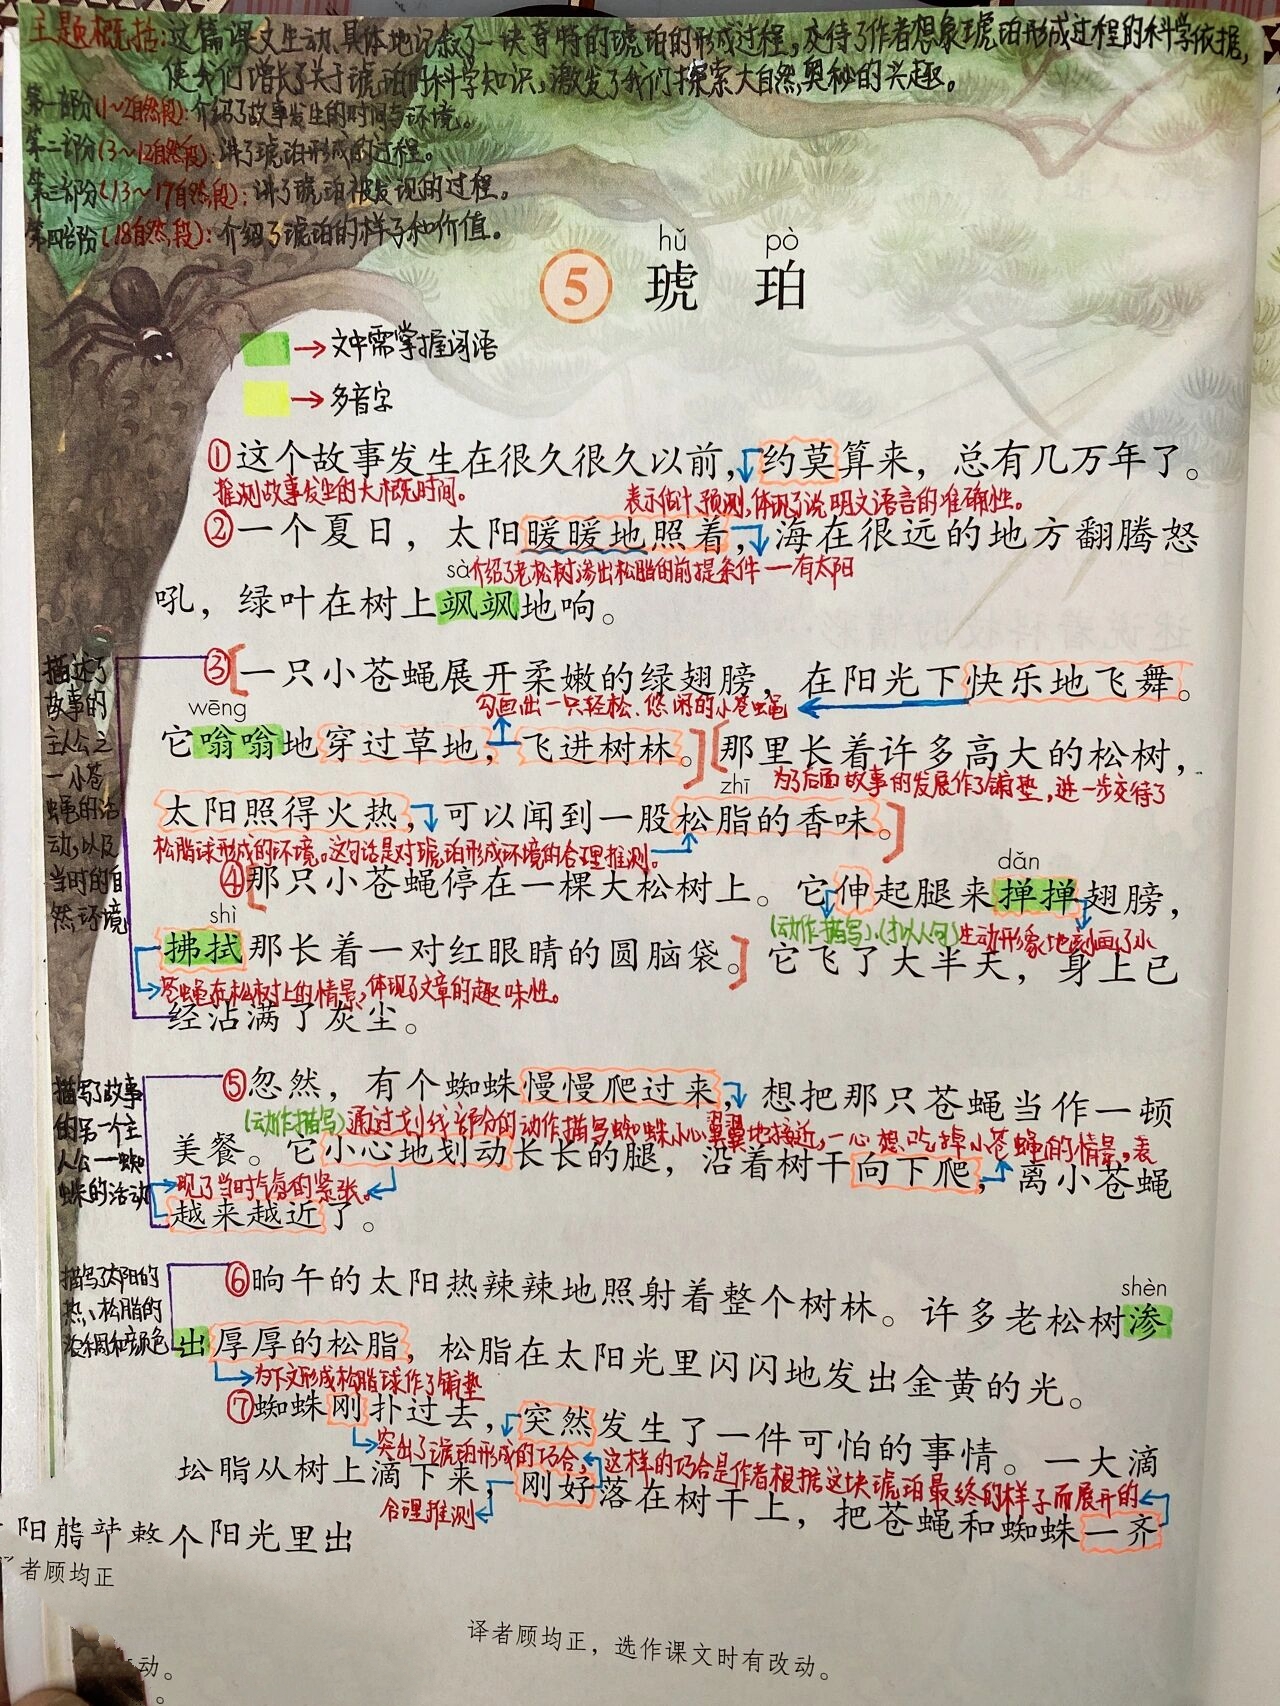 主题概括:这篇课文生动、具体地记叙了一块奇特的琥珀的形成过程,交待了作者想象琥珀形成过程的科学依据,
使我们增长了关于琥珀的科学知识,激发了我们探索大自然奥秘的兴趣。
第一部分(1~2自然段):介绍了故事发生的时间与环境。
第二部分(3~12自然段):讲了琥珀形成的过程。
第三部分(13~17自然段):讲了琥珀被发现的过程。
第四部分(18自然段):介绍了琥珀的样子和价值。
hǔ pò
5 琥 珀
→文中需掌握词语
→多音字
①这个故事发生在很久很久以前,约莫算来,总有几万年了。
推测故事发生的大概时间。
表示估计、预测,体现了说明文语言的准确性。
②一个夏日,太阳暖暖地照着,海在很远的地方翻腾怒
sà
介绍了老松树渗出松脂的前提条件一一有太阳
吼,绿叶在树上飒飒地响。
描述了
故事的
主人公之
一小苍
蝇的活
动,以及
当时的自
然环境
③一只小苍蝇展开柔嫩的绿翅膀,在阳光下快乐地飞舞。
wēng
勾画出一只轻松、悠闲的小苍蝇
它嗡嗡地穿过草地,飞进树林。那里长着许多高大的松树,
zhī
为了后面故事的发展作了铺垫,进一步交待了
太阳照得火热,可以闻到一股松脂的香味。
松脂球形成的环境。这句话是对琥珀形成环境的合理推测。
dǎn
④那只小苍蝇停在一棵大松树上。它伸起腿来掸掸翅膀,
shì
(动作描写)(拟人句)生动形象地刻画了小
拂拭那长着一对红眼睛的圆脑袋。它飞了大半天,身上已
苍蝇在松树上的情景,体现了文章的趣味性。
经沾满了灰尘。
描写了故事
的另一个主
人公一蜘
蛛的活动
⑤忽然,有个蜘蛛慢慢爬过来,想把那只苍蝇当作一顿
(动作描写)通过划线部分的动作描写蜘蛛小心翼翼地接近,一心想吃掉小苍蝇的情景,表
美餐。它小心地划动长长的腿,沿着树干向下爬,离小苍蝇
现了当时气氛的紧张。
越来越近了。
描写了太阳的
热、松脂的
浓稠和颜色
⑥晌午的太阳热辣辣地照射着整个树林。许多老松树渗
shèn
出厚厚的松脂,松脂在太阳光里闪闪地发出金黄的光。
为下文形成松脂球作了铺垫
⑦蜘蛛刚扑过去,突然发生了一件可怕的事情。一大滴
突出了琥珀形成的巧合,这样的巧合是作者根据这块琥珀最终的样子而展开的
松脂从树上滴下来,刚好落在树干上,把苍蝇和蜘蛛一齐
合理推测
个阳光里出
者顾均正
译者顾均正,选作课文时有改动。
动。